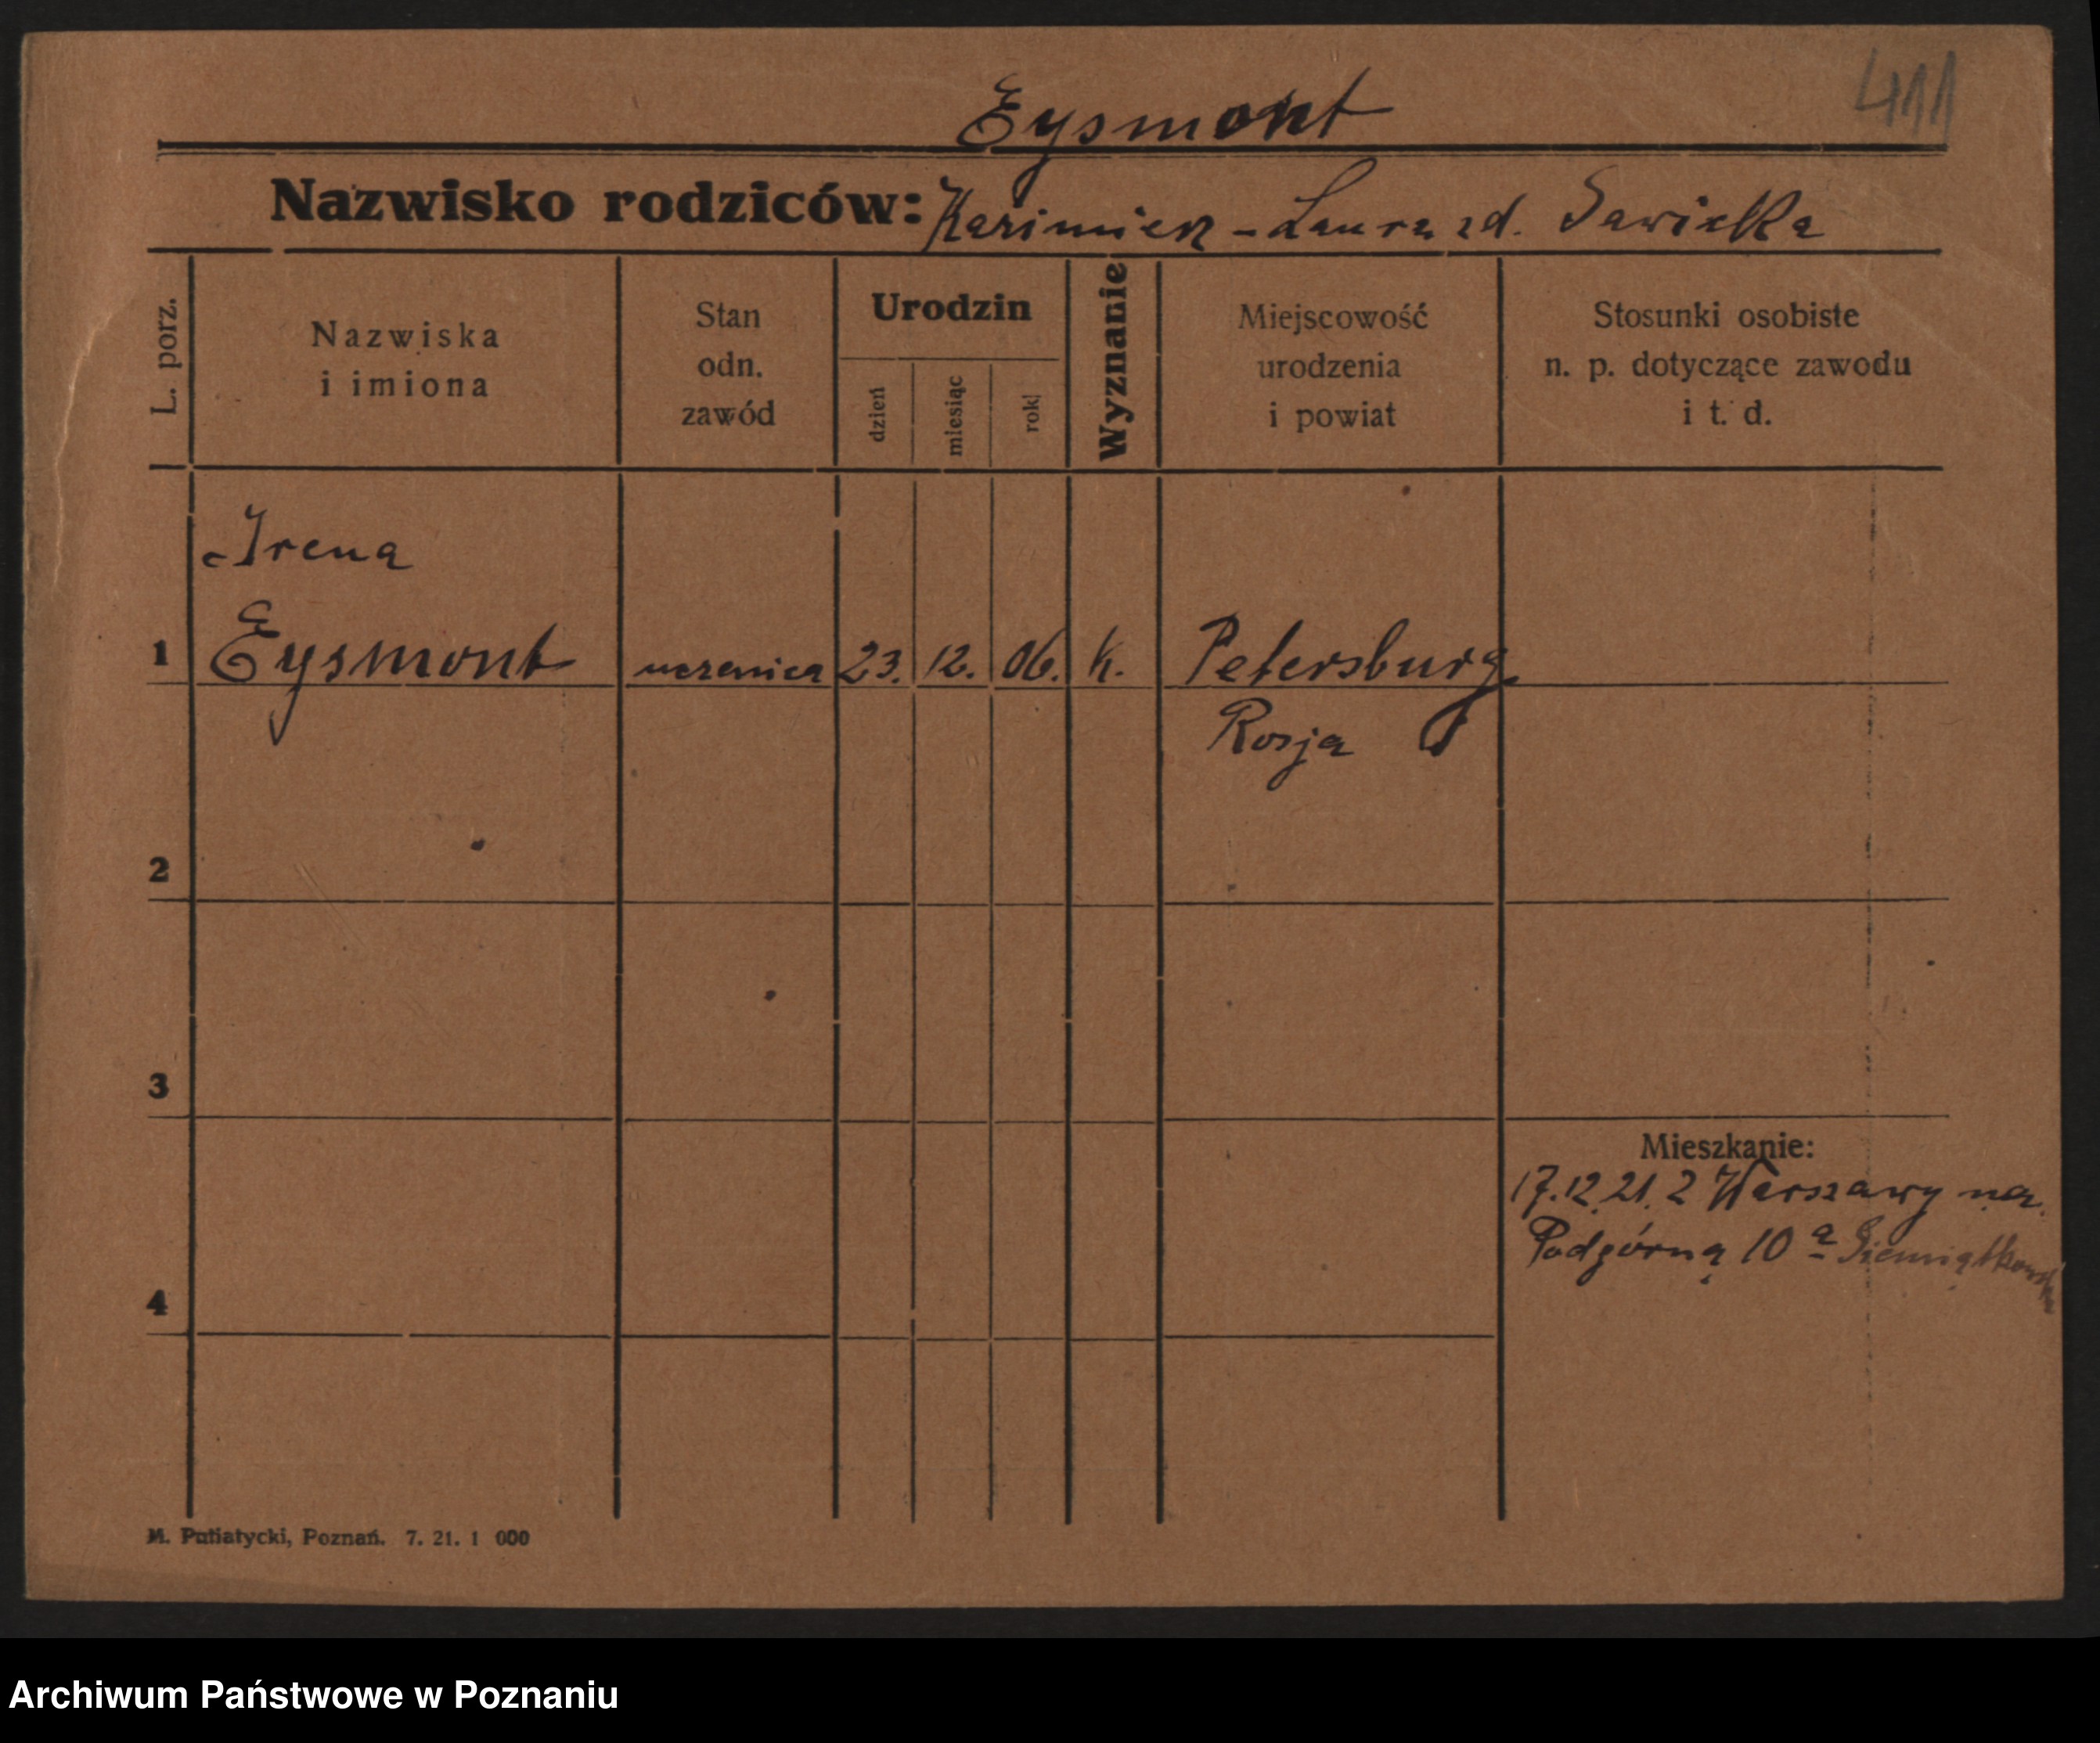 411
Eysmont
Nazwisko rodziców: Kazimierz - Laura zd. Sawicka
L. porz.
Nazwiska
i imiona
Stan
odn.
zawód
Urodzin
dzień
miesiąc
rok
Wyznanie
Miejscowość
urodzenia
i powiat
Stosunki osobiste
n. p. dotyczące zawodu
i t. d.
Irena
1 Eysmont uczenica 23. 12. 06. k. Petersburg
Rosja
2
3
Mieszkanie:
17.12.21. z Warszawy na
Podgórną 10 a Siemiątkowski
4
M. Putiatycki, Poznań. 7. 21. 1 000
Archiwum Państwowe w Poznaniu